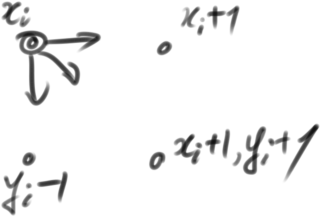 xᵢ
xᵢ+1
yᵢ-1
xᵢ+1, yᵢ+1